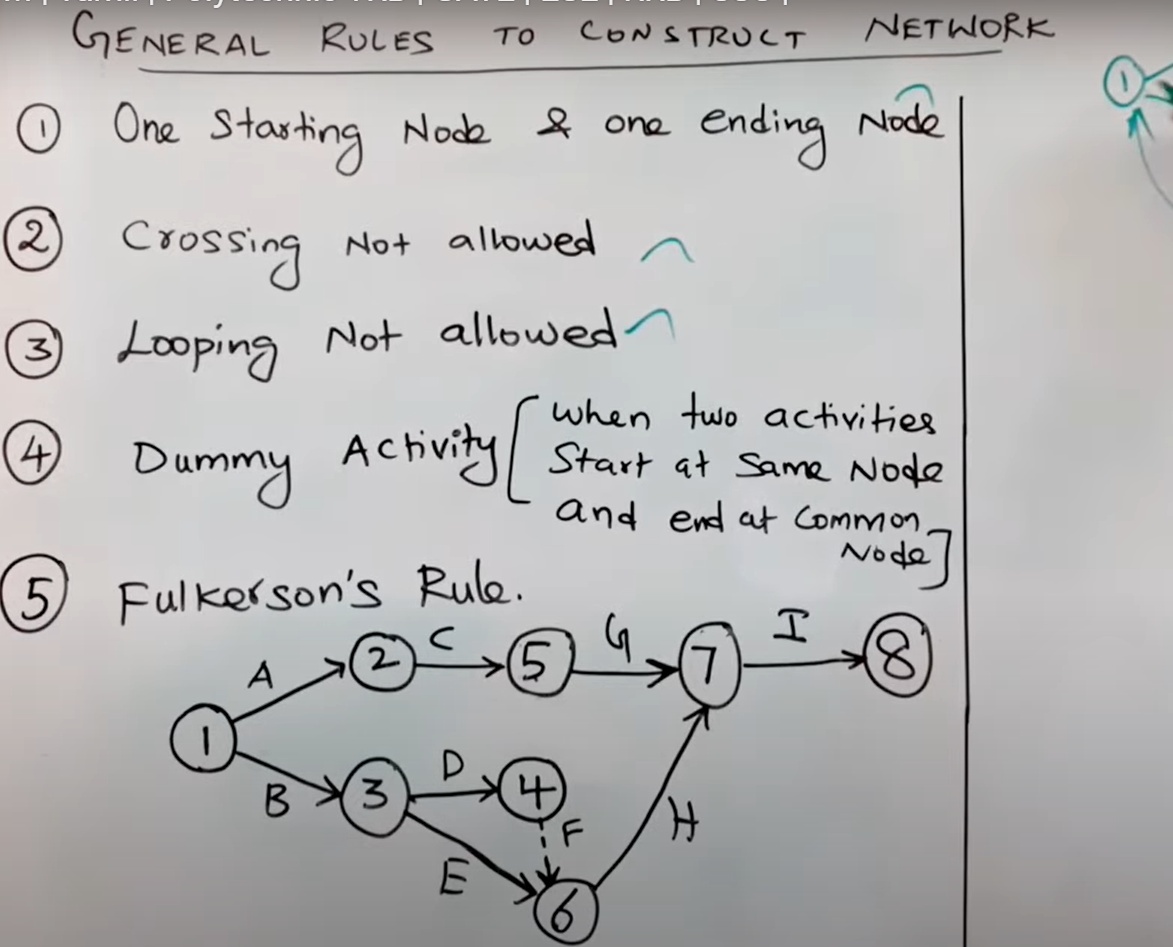 GENERAL RULES TO CONSTRUCT NETWORK
① One Starting Node & one ending Node
② Crossing Not allowed
③ Looping Not allowed
④ Dummy Activity [when two activities
Start at Same Node
and end at Common
Node]
⑤ Fulkerson's Rule.
A 2 C 5 G 7 I 8
1
B 3 D 4
E F H
6
1